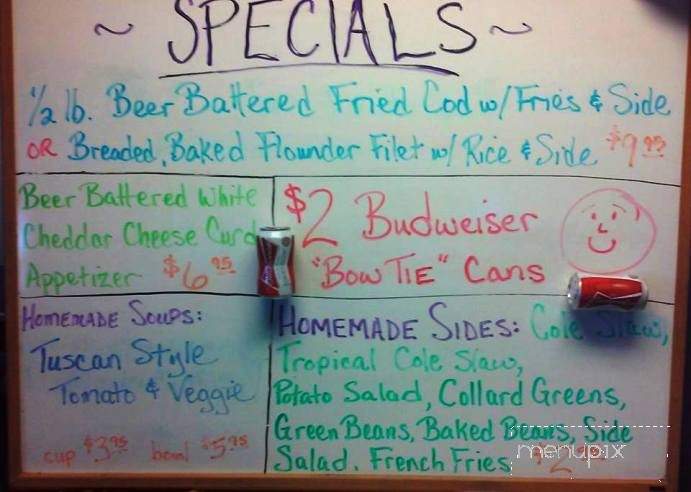 ~ SPECIALS ~
1/2 lb. Beer Battered Fried Cod w/ Fries & Side
OR Breaded, Baked Flounder Filet w/ Rice & Side $9.95
Beer Battered White
Cheddar Cheese Curd
Appetizer $6.95
$2 Budweiser
"BOW TIE" Cans
HOMEMADE SOUPS:
Tuscan Style
Tomato & Veggie
cup $3.95 bowl $5.95
HOMEMADE SIDES: Cole Slaw,
Tropical Cole Slaw,
Potato Salad, Collard Greens,
Green Beans, Baked Beans, Side
Salad, French Fries
menupix